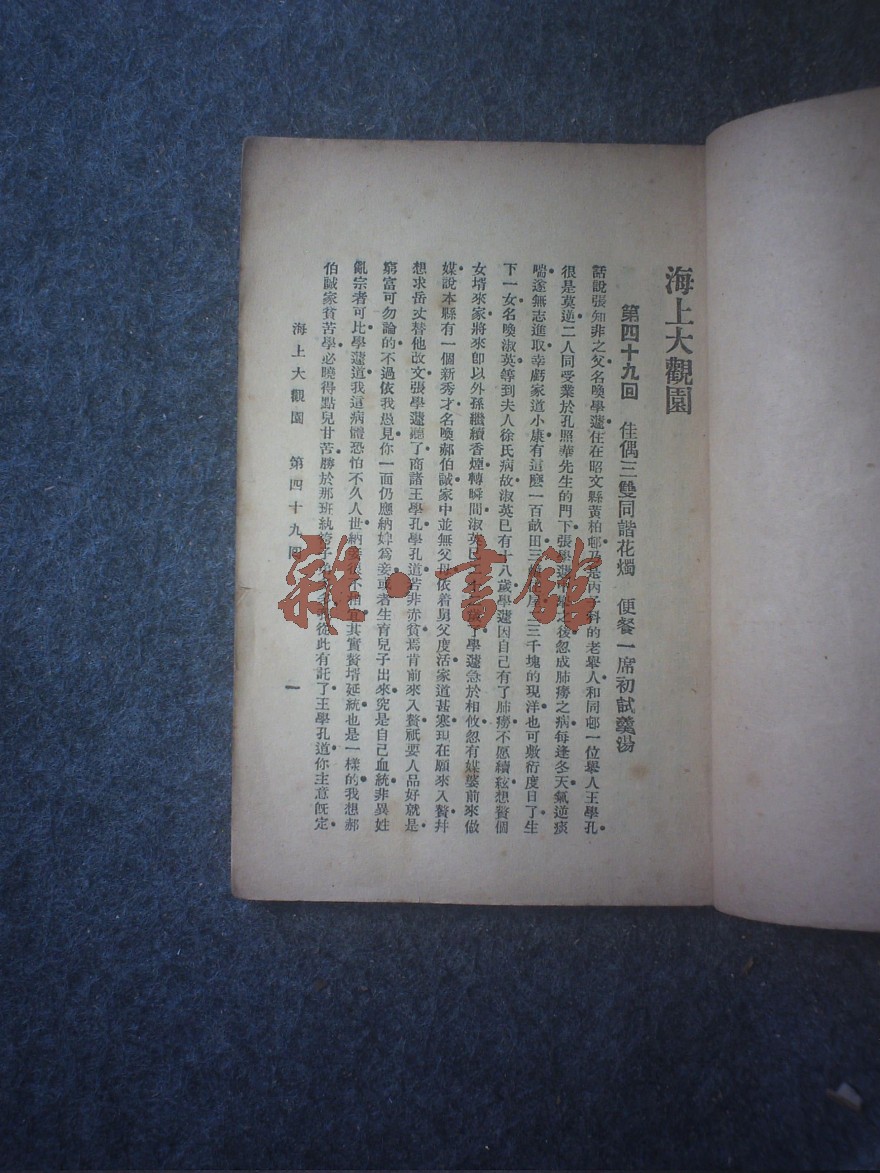 海上大觀園
第四十九回 佳偶三雙同諧花燭 便餐一席初試羹湯
話說張知非之父名喚學蘧住在昭文縣黃柏邨乃是丙子科的老舉人和同邨一位舉人王學孔
很是莫逆二人同受業於孔照華先生的門下張學蘧中舉之後忽成肺癆之病每逢冬天氣逆痰
喘遂無志進取幸虧家道小康有這麼一百畝田三幢住房二三千塊的現洋也可敷衍度日了生
下一女名喚淑英等到夫人徐氏病故淑英已有十八歲學蘧因自己有了肺癆不愿續絃想贅個
女壻來家將來卽以外孫繼續香煙轉瞬間淑英已二十了學蘧急於相攸忽有媒婆前來做
媒說本縣有一個新秀才名喚郝伯誠家中並無父母依着舅父度活家道甚寒現在願來入贅幷
想求岳丈替他改文張學蘧聽了商諸王學孔學孔道若非赤貧焉肯前來入贅祇要人品好就是
窮富可勿論的不過依我愚見你一面仍應納婢爲妾或者生育兒子出來究是自己血統非異姓
亂宗者可比學蘧道我這病體恐怕不久人世納妾很不相宜其實贅壻延統也是一樣的我想郝
伯誠家貧苦學必曉得點兒甘苦勝於那班紈袴子弟從此有託了王學孔道你主意旣定
海上大觀園 第四十九回 一
雜·書館